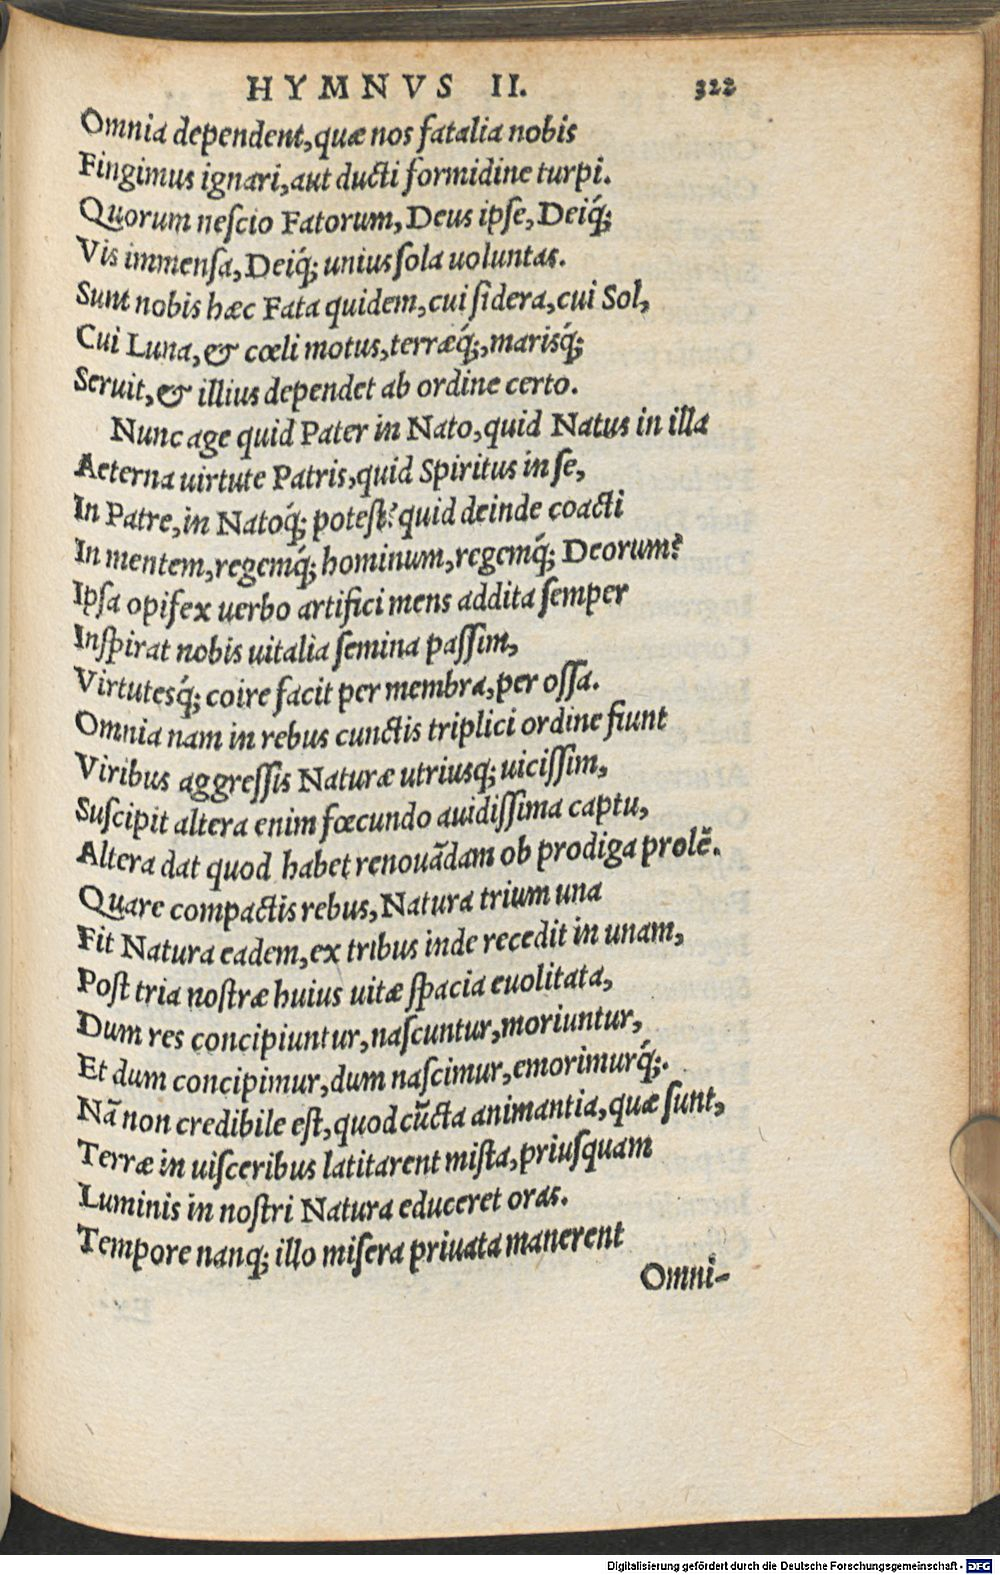 HYMNVS II. 322
Omnia dependent, quæ nos fatalia nobis
Fingimus ignari, aut ducti formidine turpi.
Quorum nescio Fatorum, Deus ipse, Deiq́;
Vis immensa, Deiq́; unius sola uoluntas.
Sunt nobis hæc Fata quidem, cui sidera, cui Sol,
Cui Luna, & cœli motus, terræq́;, marisq́;
Seruit, & illius dependet ab ordine certo.
Nunc age quid Pater in Nato, quid Natus in illa
Aeterna uirtute Patris, quid Spiritus in se,
In Patre, in Natoq́; potest? quid deinde coacti
In mentem, regemq́; hominum, regemq́; Deorum?
Ipsa opifex uerbo artifici mens addita semper
Inspirat nobis uitalia semina passim,
Virtutesq́; coire facit per membra, per ossa.
Omnia nam in rebus cunctis triplici ordine fiunt
Viribus aggressis Naturæ utriusq; uicissim,
Suscipit altera enim fœcundo auidissima captu,
Altera dat quod habet renouãdam ob prodiga prolẽ.
Quare compactis rebus, Natura trium una
Fit Natura eadem, ex tribus inde recedit in unam,
Post tria nostræ huius uitæ spacia euolitata,
Dum res concipiuntur, nascuntur, moriuntur,
Et dum concipimur, dum nascimur, emorimurq́;.
Nã non credibile est, quod cũcta animantia, quæ sunt,
Terræ in uisceribus latitarent mista, priusquam
Luminis in nostri Natura educeret oras.
Tempore nanq; illo misera priuata manerent
Omni-
Digitalisierung gefördert durch die Deutsche Forschungsgemeinschaft - DFG